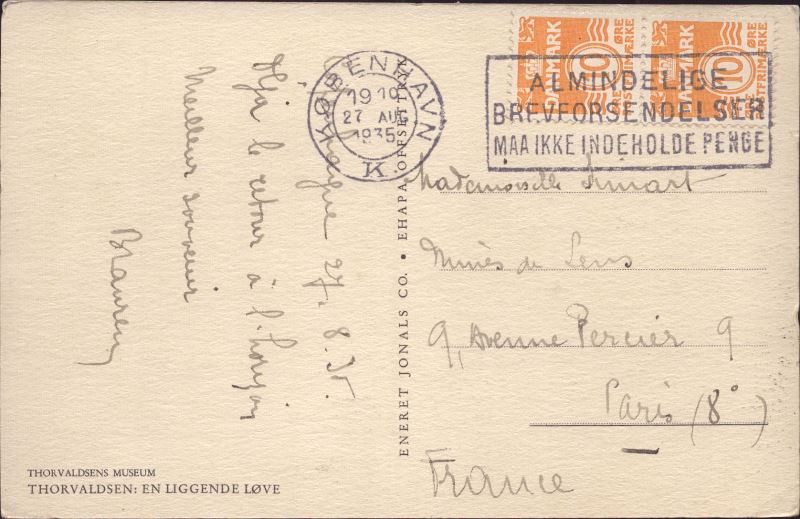 Copenhague 27.8.35.
Déjà le retour à l'horizon
Meilleur souvenir
KØBENHAVN
19 10
27 AUG
1935
K.
DANMARK 10 ØRE POSTFRIMÆRKE
DANMARK 10 ØRE POSTFRIMÆRKE
ALMINDELIGE
BREVFORSENDELSER
MAA IKKE INDEHOLDE PENGE
ENERET JONALS CO. • EHAPA OFFSETTRYK
Mademoiselle
Mines de Lens
9, Avenue Percier 9
Paris (8°)
France
THORVALDSENS MUSEUM
THORVALDSEN: EN LIGGENDE LØVE